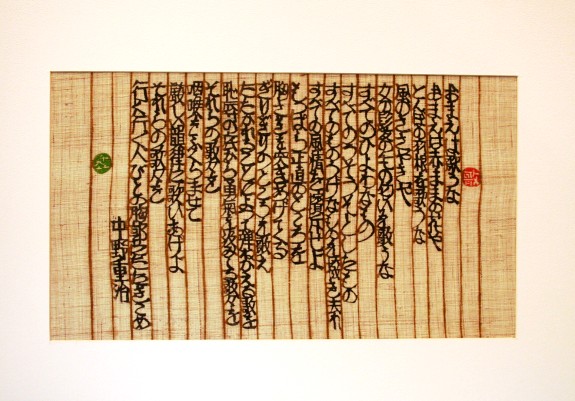 おまえは歌うな
おまえは赤ままの花や
とんぼの羽根を歌うな
風のささやきや
女の髪の毛の匂いを歌うな
すべてのひよわなもの
すべてのうそうそとしたもの
すべてのものうげなものを撥き去れ
すべての風情を擯斥せよ
もっぱら正直のところを
胸さきを突き上げてくる
ぎりぎりのところを歌え
たたかれることによって弾ねかえる歌を
恥辱の底から勇気を汲みくる歌を
それらの歌々を
咽喉をふくらませて
厳しい韻律に歌いあげよ
それらの歌々を
行く行く人びとの胸郭にたたきこめ
中野重治